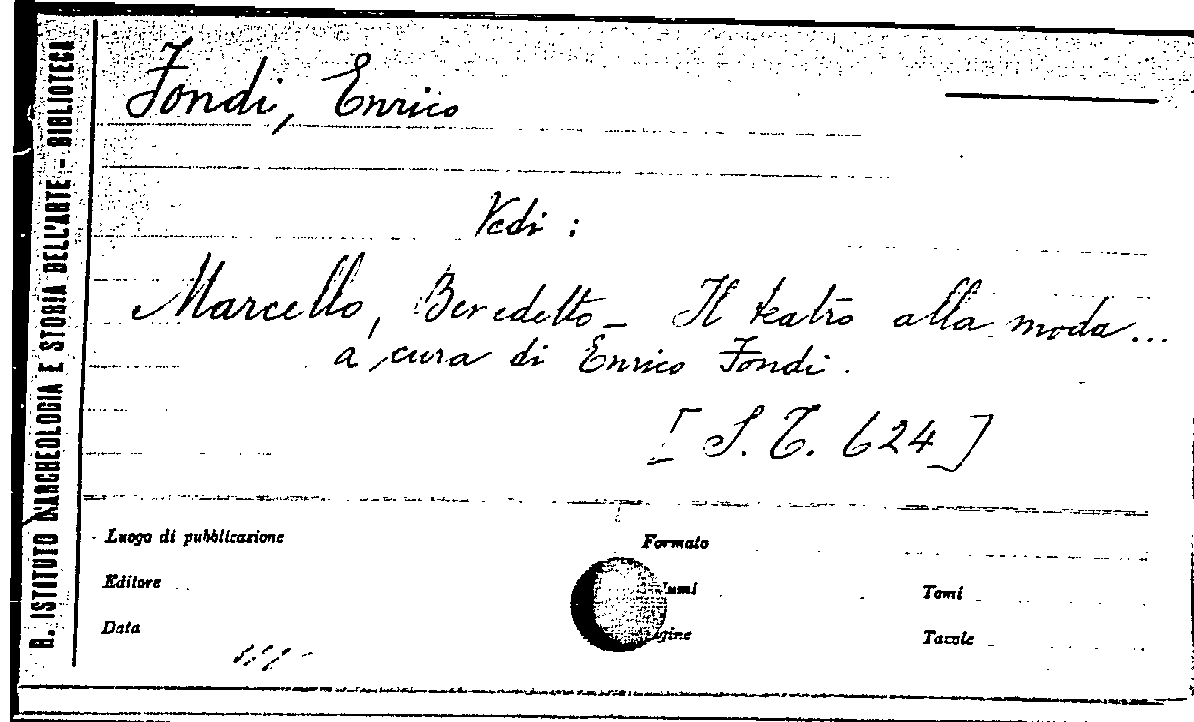 R. ISTITUTO D'ARCHEOLOGIA E STORIA DELL'ARTE - BIBLIOTECA
Fondi, Enrico
Vedi :
Marcello, Benedetto - Il teatro alla moda...
a cura di Enrico Fondi.
[S. T. 624]
Luogo di pubblicazione
Formato
Editore
Tomi
Data
Tavole